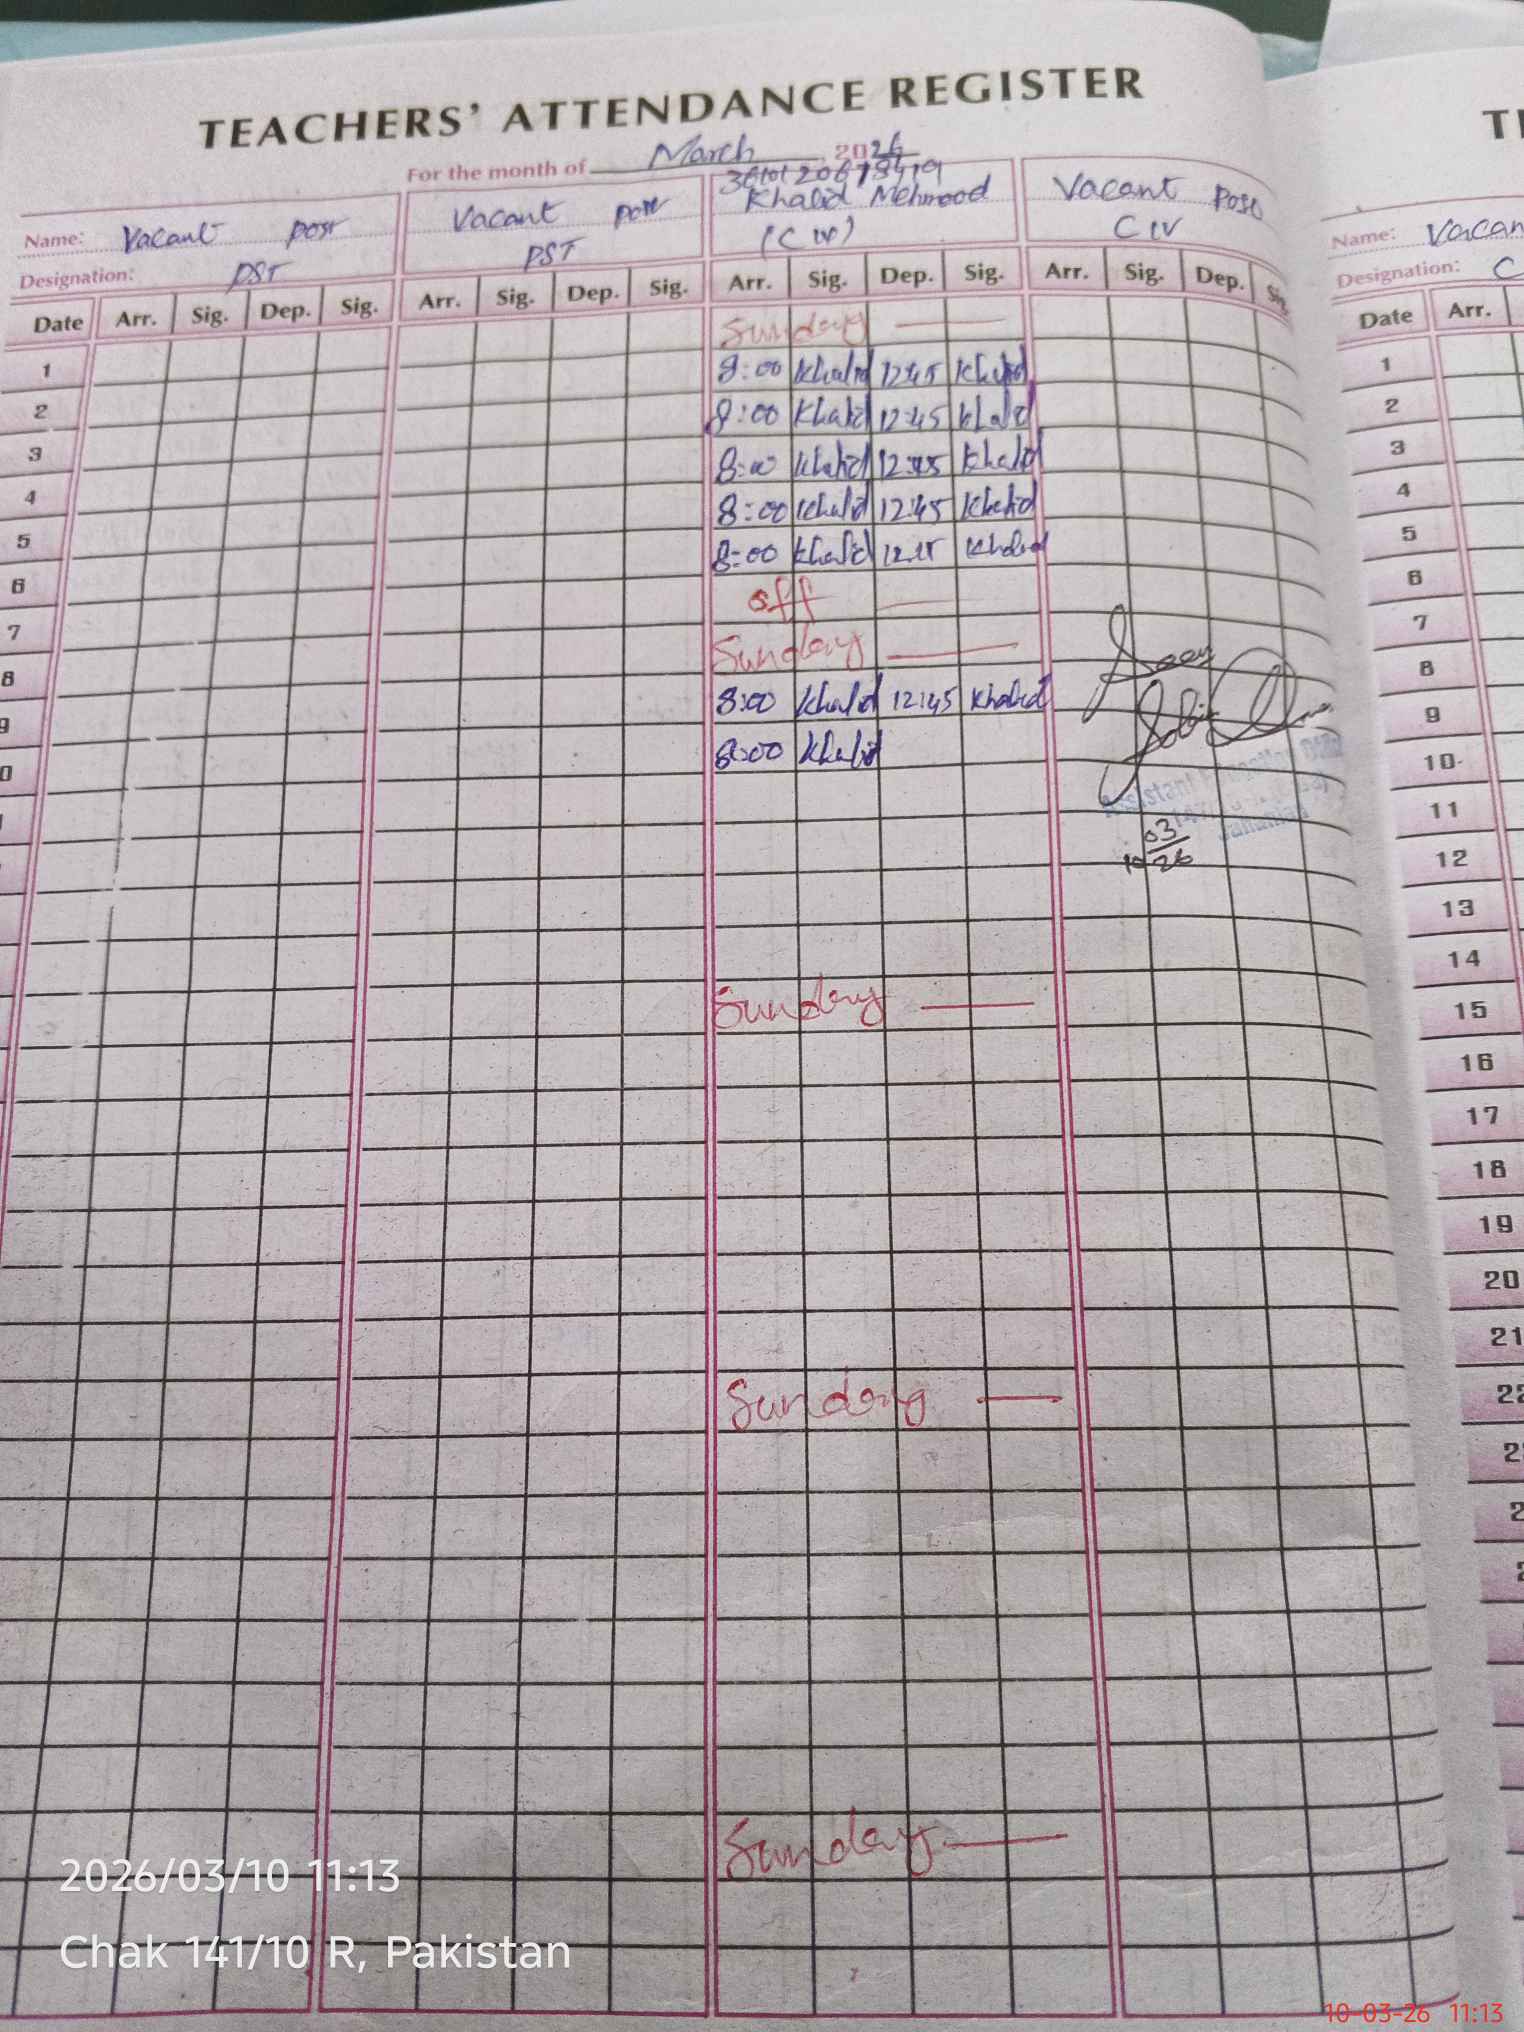 TEACHERS' ATTENDANCE REGISTER
For the month of March 2026
Name: Vacant post
Designation: PST
Vacant post
PST
Khalid Mehmood
(C IV)
Vacant Post
C IV
Date Arr. Sig. Dep. Sig. Arr. Sig. Dep. Sig. Arr. Sig. Dep. Sig. Arr. Sig. Dep. Sig.
Sunday
1 8:00 Khalid 12:45 Khalid
2 8:00 Khalid 12:45 Khalid
3 8:00 Khalid 12:45 Khalid
4 8:00 Khalid 12:45 Khalid
5 8:00 Khalid Khalid
6 off
7 Sunday
8 8:00 Khalid 12:45 Khalid
9 8:00 Khalid
0
Assistant Education
Jahanian
03
10 26
Sunday
Sunday
Sunday
Name: Vacan
Designation: C
Date Arr.
1
2
3
4
5
6
7
8
9
10
11
12
13
14
15
16
17
18
19
20
21
22
2026/03/10 11:13
Chak 141/10 R, Pakistan
10-03-26 11:13